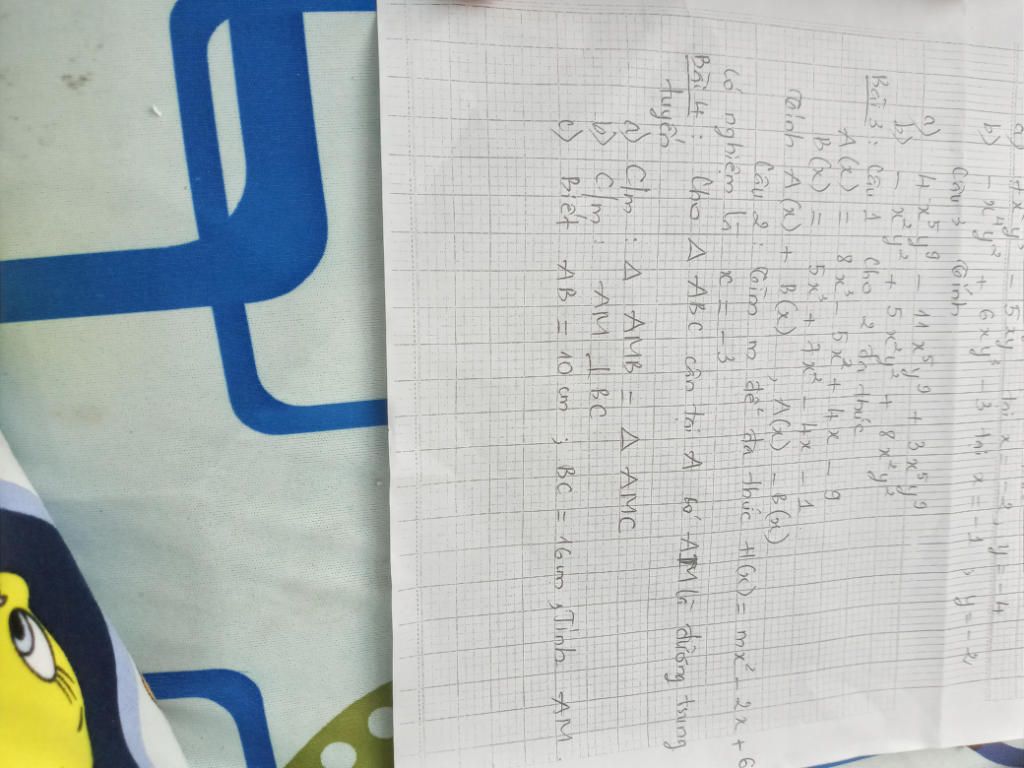 a) 7x²y³ - 5xy³ tại x = -2, y = -4
b) - x⁴y² + 6xy³ - 3 tại x = -1, y = -2
Câu 3 Tính
a) 4x⁵y⁹ - 11x⁵y⁹ + 3x⁵y⁹
b) - x²y² + 5x²y² + 8x²y²
Bài 3: Câu 1 cho 2 đa thức
A(x) = 8x³ - 5x² + 4x - 9
B(x) = 5x³ + 7x² - 4x - 1
Tính A(x) + B(x), A(x) - B(x)
Câu 2: Tìm m để đa thức H(x) = mx² - 2x + 6
có nghiệm là x = -3
Bài 4: Cho Δ ABC cân tại A có AM là đường trung
tuyến
a) C/m: Δ AMB = Δ AMC
b) C/m: AM ⊥ BC
c) Biết AB = 10 cm; BC = 16cm, Tính AM.